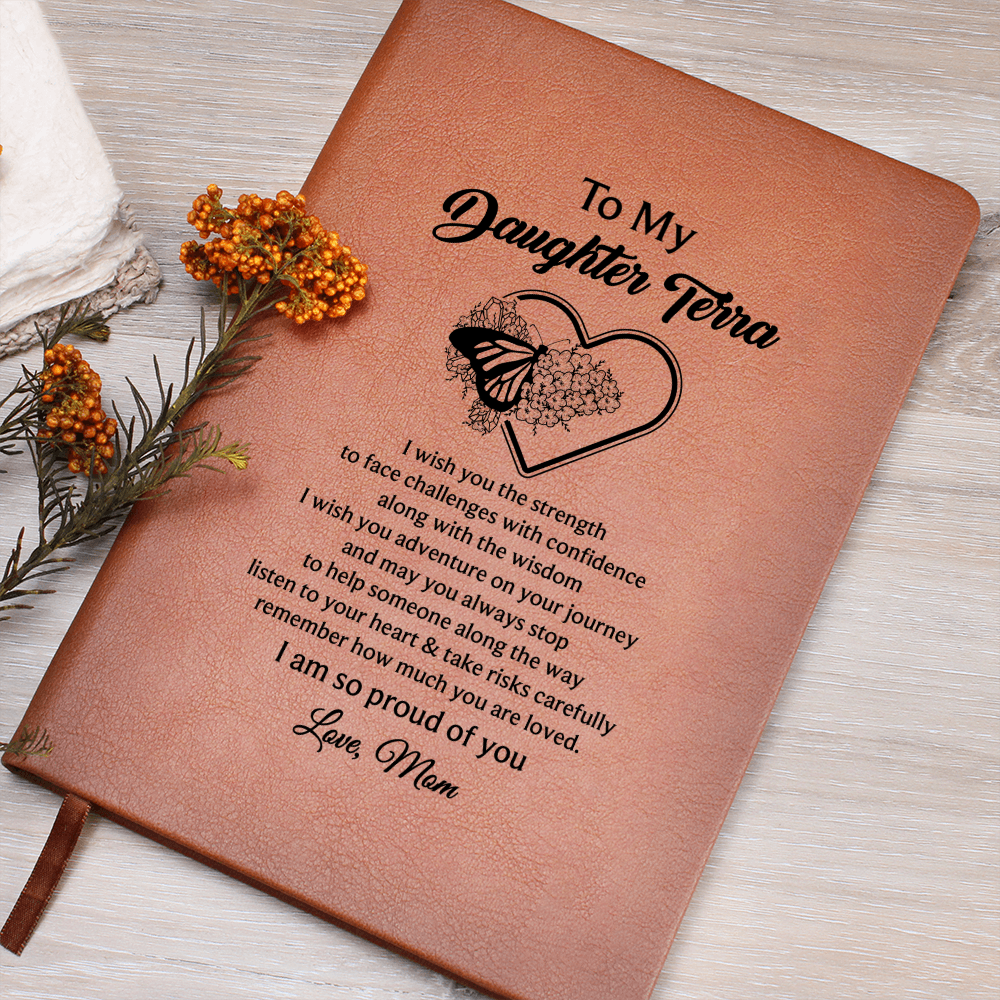 To My
Daughter Terra
I wish you the strength
to face challenges with confidence
along with the wisdom
I wish you adventure on your journey
and may you always stop
to help someone along the way
listen to your heart & take risks carefully
remember how much you are loved.
I am so proud of you
Love, Mom